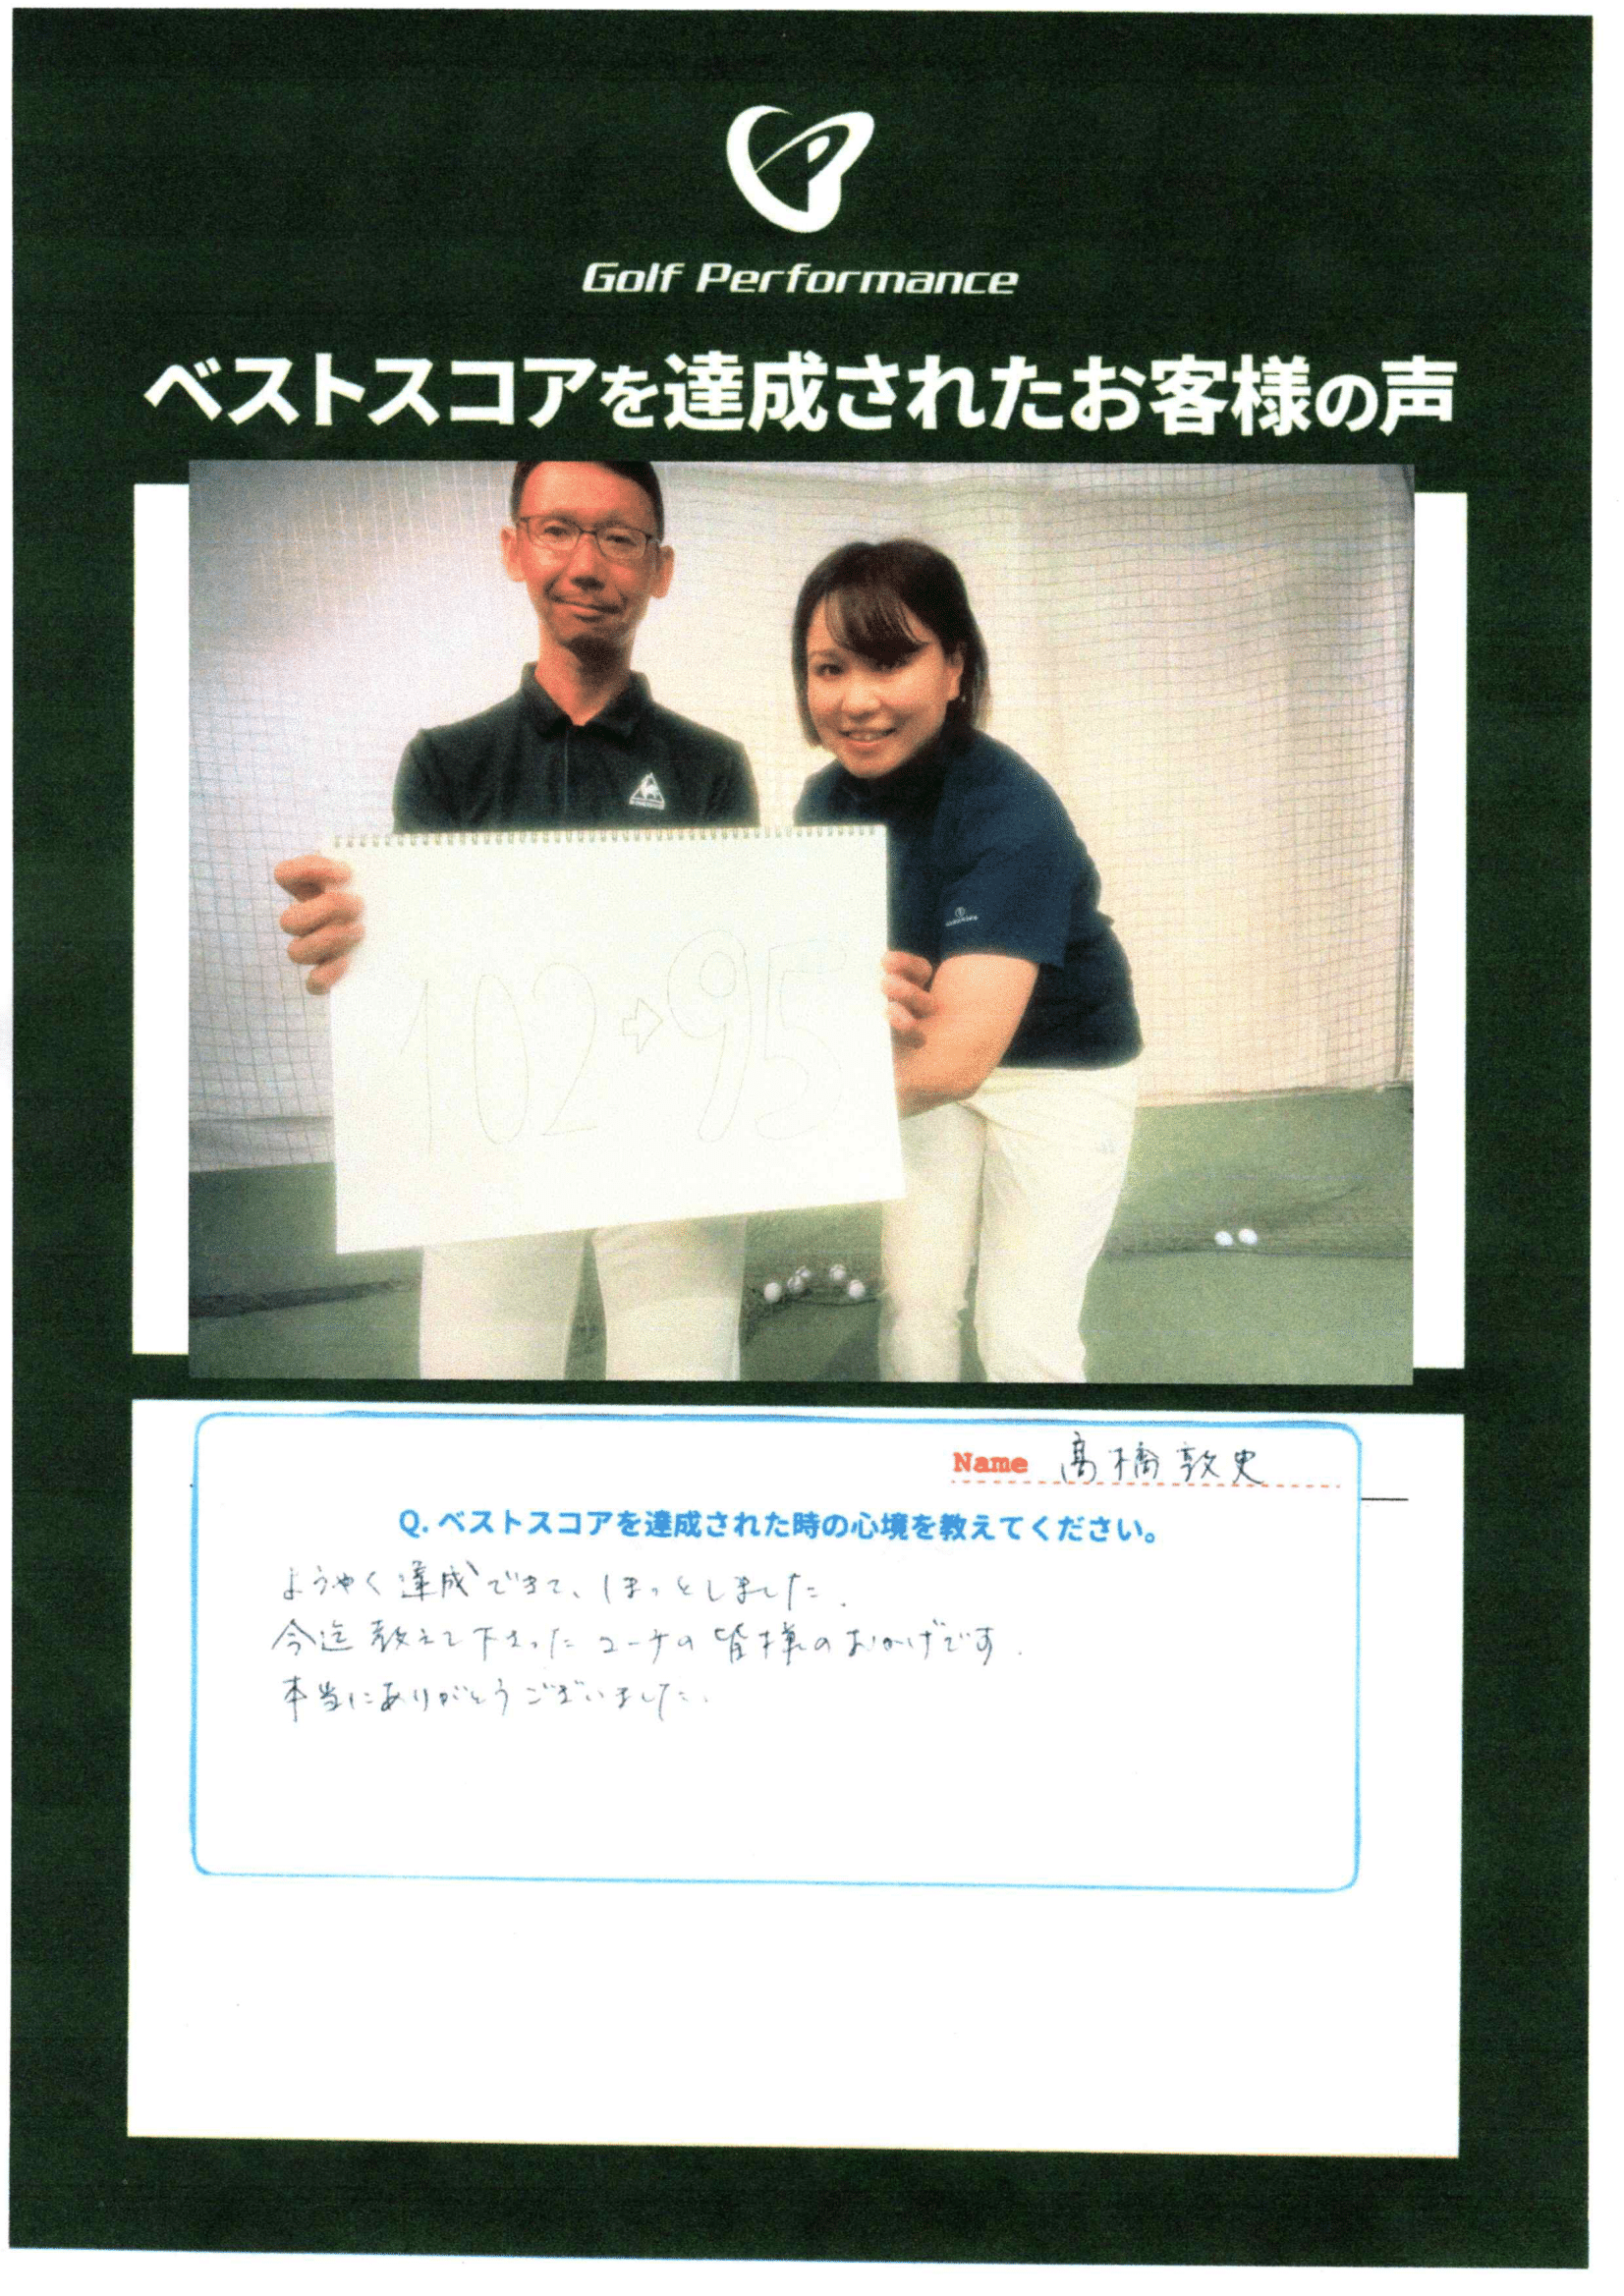 Golf Performance
ベストスコアを達成されたお客様の声
102⇨95
Name 髙橋敦史
Q. ベストスコアを達成された時の心境を教えてください。
ようやく達成できて、ほっとしました.
今迄教えて下さったコーチの皆様のおかげです.
本当にありがとうございました.